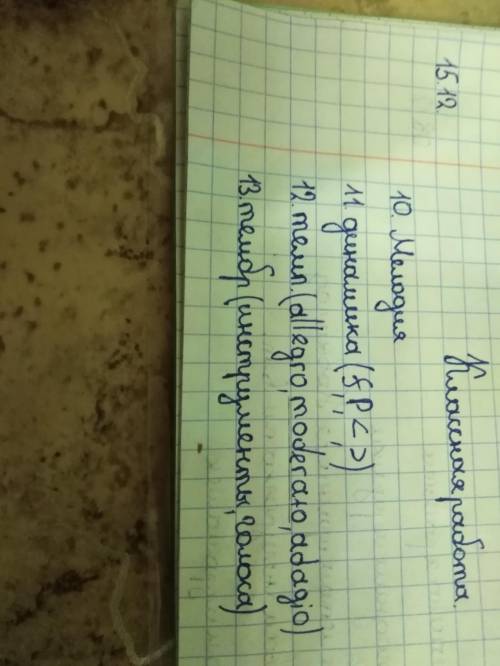 15.12.
Классная работа.
10. Мелодия
11 динамика (f, p, <, >)
12. темп. (allegro, moderato, adagio)
13. тембр (инструменты, голоса)